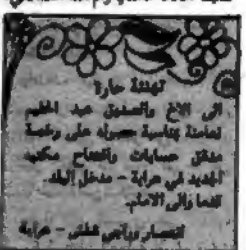 تهنئة حارة
الى الاخ والصديق عبد الحليم
بمناسبة حصوله على رخصة
مدقق حسابات وافتتاح مكتبه
الجديد في عرابة - مدخل البلد.
قدما والى الامام.
- عرابة